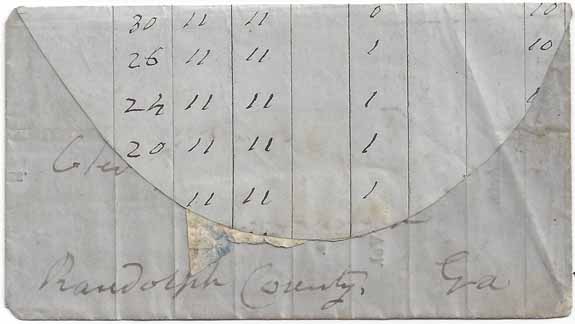 30 11 11 0 10
26 11 11 1 10
24 11 11 1 1
20 11 11 1
11 11 1
Randolph County, Ga